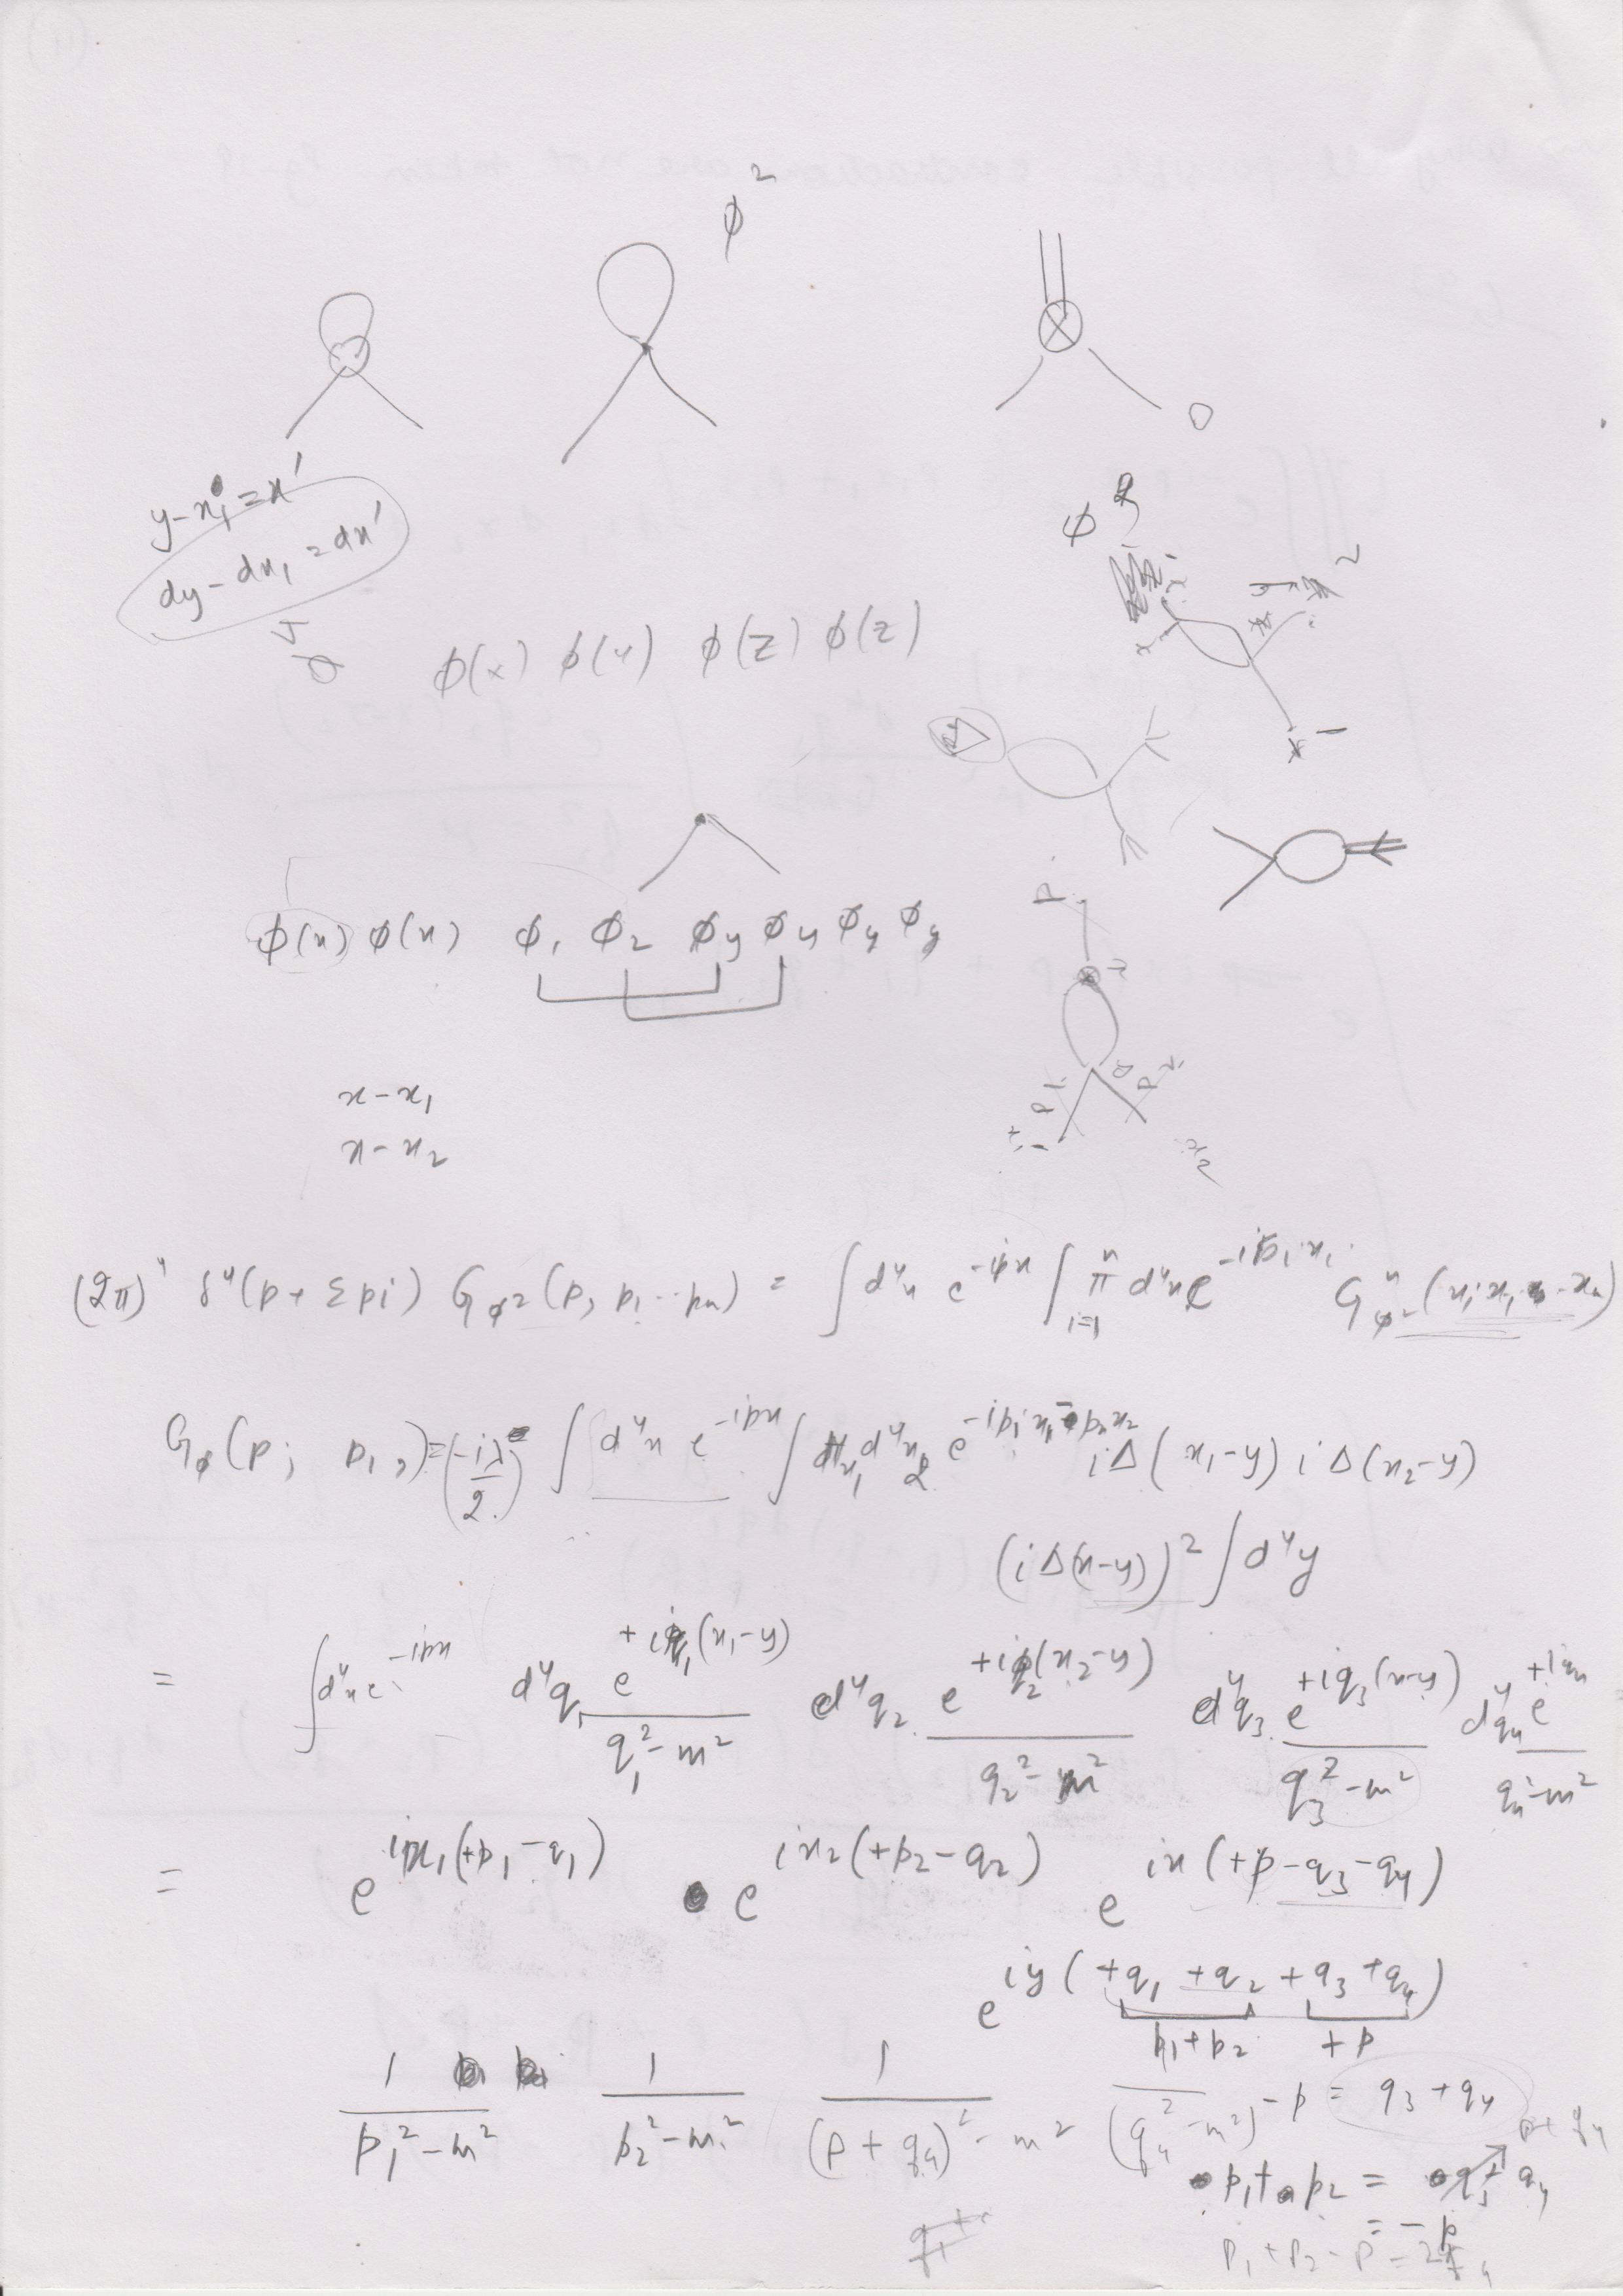 ϕ²
y-x₁=x'
dy-dx₁=dx'
ϕ
ϕ(x) ϕ(y) ϕ(z) ϕ(z)
ϕ(x) ϕ(x) ϕ₁ ϕ₂ ϕy ϕy ϕy ϕy
x-x₁
x-x₂
(2π)⁴ δ⁴(p+Σpi) Gϕ²(p, p₁..pn) = ∫d⁴x e^{-ipx} ∫ π_{i=1}^{n} d⁴x e^{-ip_i x_i} G^n_{ϕ²}(x; x₁ .. xn)
Gϕ(p; p₁,) = (-iλ/2) ∫ d⁴x e^{-ipx} ∫ d⁴x₂ e^{-ip₁x₁-p₂x₂} iΔ(x₁-y) iΔ(x₂-y)
(iΔ(x-y))² ∫d⁴y
= ∫d⁴x e^{-ipx} d⁴q₁ e^{+iq₁(x₁-y)}/(q₁²-m²) d⁴q₂ e^{+iq₂(x₂-y)}/(q₂²-m²) d⁴q₃ e^{+iq₃(x-y)}/(q₃²-m²) d⁴q₄ e/(q₄²-m²)
= e^{ix₁(+p₁-q₁)} e^{ix₂(+p₂-q₂)} e^{ix(+p-q₃-q₄)}
e^{iy(+q₁+q₂+q₃+q₄)}
p₁+p₂ +p
1/(p₁²-m²) 1/(p₂²-m²) 1/((p+q₄)²-m²) (q₄²-m²) -p = q₃+q₄
p₁+p₂ =
= -p